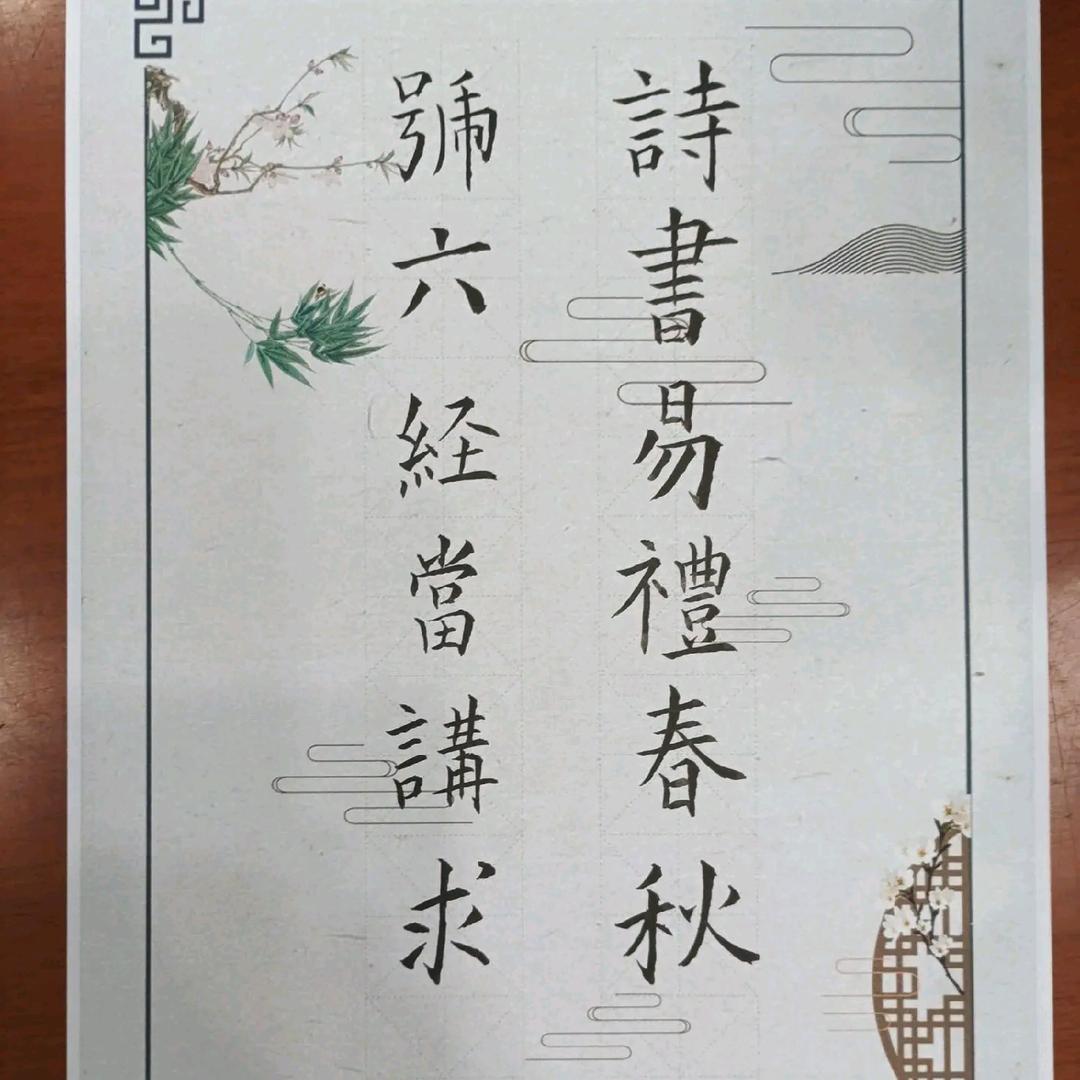 詩書易禮春秋
號六経當講求